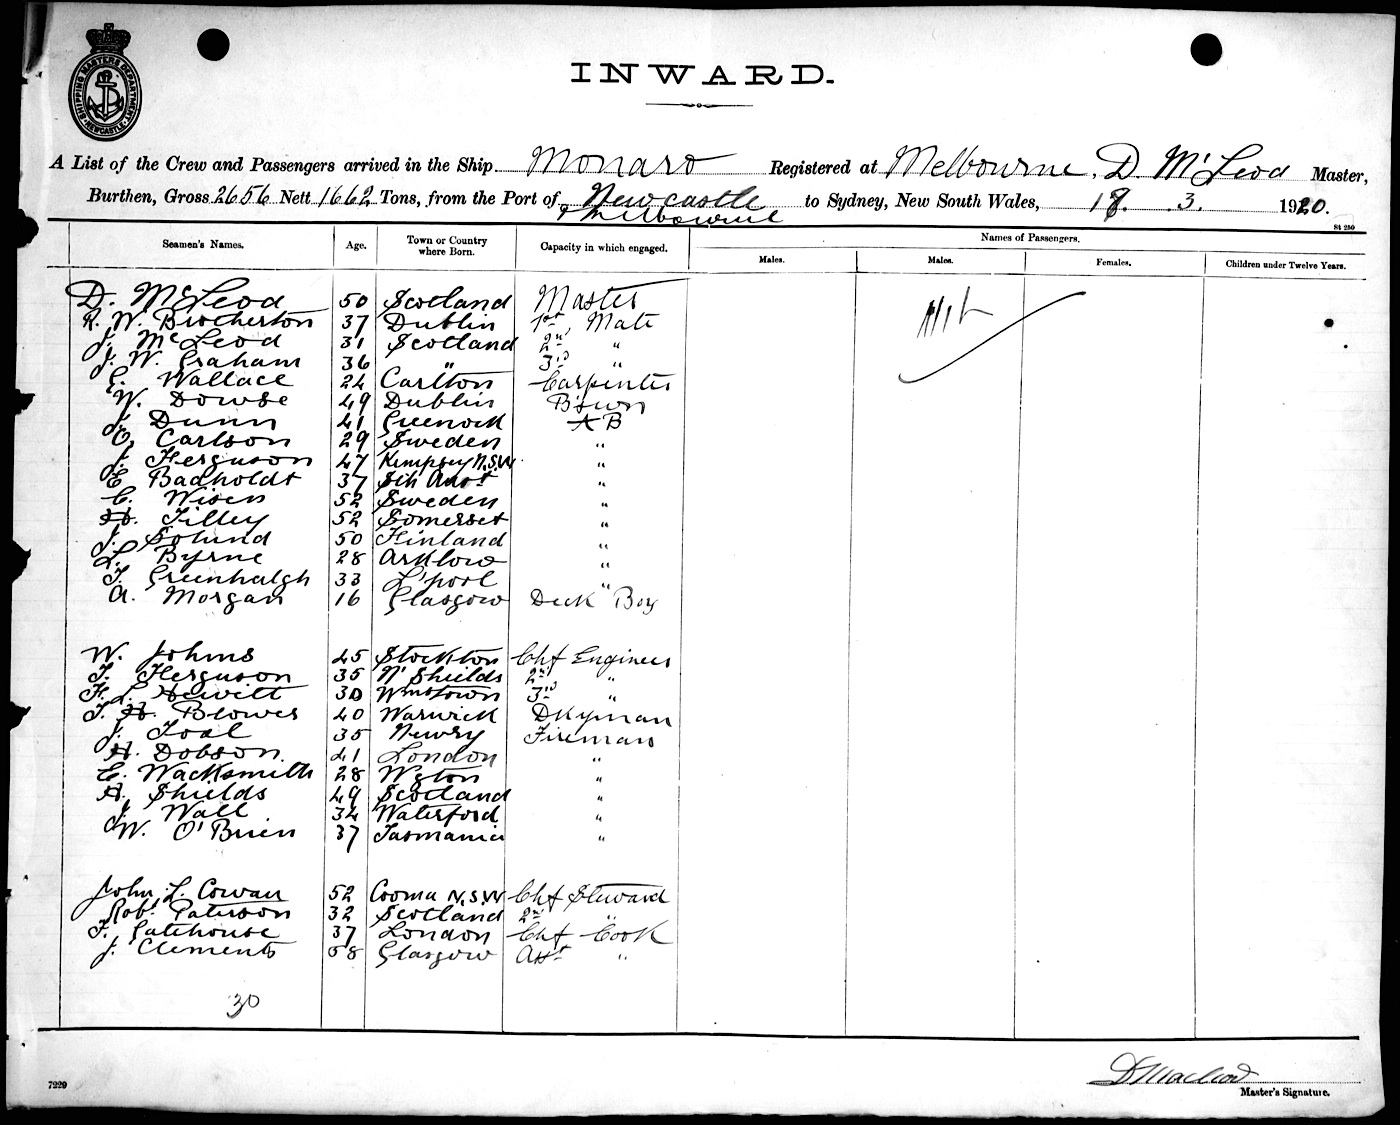 SHIPPING MASTERS DEPARTMENT NEWCASTLE
INWARD.
A List of the Crew and Passengers arrived in the Ship Monaro Registered at Melbourne, D. McLeod Master,
Burthen, Gross 2656 Nett 1662 Tons, from the Port of Newcastle to Sydney, New South Wales, 18. 3. 1920.
& Melbourne
St 250
Seamen's Names. Age. Town or Country where Born. Capacity in which engaged. Names of Passengers.
Males. Males. Females. Children under Twelve Years.
D. McLeod 50 Scotland Master Nil
R. W. Brotherton 37 Dublin 1st, Mate
J. McLeod 31 Scotland 2nd "
J. W. Graham 36 " 3rd "
G. Wallace 24 Carlton Carpenter
W. Dowse 49 Dublin B'swn
J. Dunn 41 Greenock AB
O. Carlson 29 Sweden "
J. Ferguson 47 Kempsey N.S.W. "
E Badholdt 37 Sth Aust "
C. Wisen 52 Sweden "
H. Tilley 52 Somerset "
J. Solund 50 Finland "
L. Byrne 28 Arklow "
T. Greenhalgh 33 L'pool "
A. Morgan 16 Glasgow Deck Boy
W. Johns 45 Stockton Chf Engineer
T. Ferguson 35 N' Shields 2nd "
F. L. Hewitt 30 Wmstown 3rd "
T. H. Blower 40 Warwick Dkyman
J. Toal 35 Newry Fireman
H. Dobson 41 London "
C. Wacksmith 28 Wgton "
A. Shields 49 Scotland "
J. Wall 34 Waterford "
W. O'Brien 37 Tasmania "
John L. Cowan 52 Cooma N.S.W Chf Steward
Robt Paterson 32 Scotland 2nd "
F. Gatehouse 37 London Chf Cook
J. Clements 58 Glasgow Asst "
30
D Macleod
7229 Master's Signature.